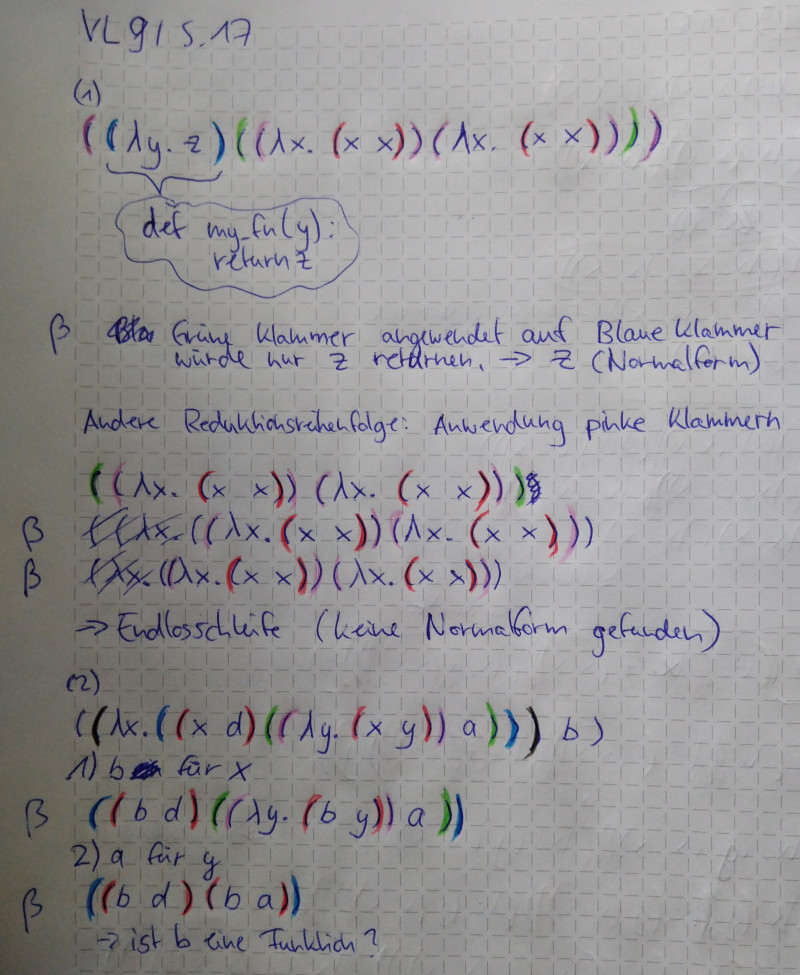 VL9 / S.17
(1)
((λy. z)((λx. (x x))(λx. (x x))))
def my_fn(y):
return z
β Grüne Klammer angewendet auf Blaue Klammer
würde nur z returnen. → z (Normalform)
Andere Reduktionsreihenfolge: Anwendung pinke Klammern
((λx. (x x)) (λx. (x x)))
β ((λx. (x x))(λx. (x x)))
β ((λx. (x x))(λx. (x x)))
⇒ Endlosschleife (keine Normalform gefunden)
(2)
((λx.((x d)((λy. (x y)) a))) b)
1) b für x
β ((b d)((λy. (b y)) a))
2) a für y
β ((b d)(b a))
→ ist b eine Funktion?